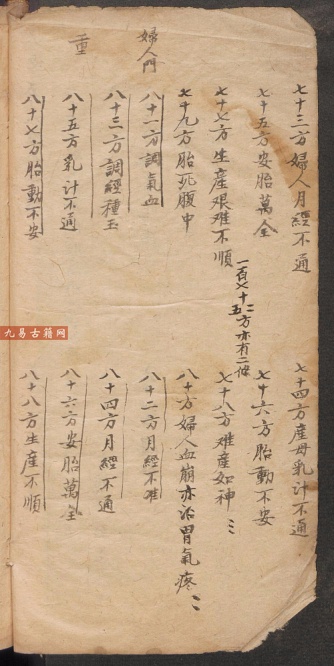 婦人門
七十三方婦人月經不通
七十四方產母乳汁不通
七十五方安胎萬全
七十六方胎動不安
七十七方生產艰难不順
一百七十二方亦有二條
五
七十八方难產如神
七十九方胎死腹中
八十方婦人血崩亦治胃氣疼
八十一方調氣血
八十二方月經不准
八十三方調經種玉
八十四方月經不通
重
八十五方乳汁不通
八十六方安胎萬全
八十七方胎動不安
八十八方生產不順
九易古籍网